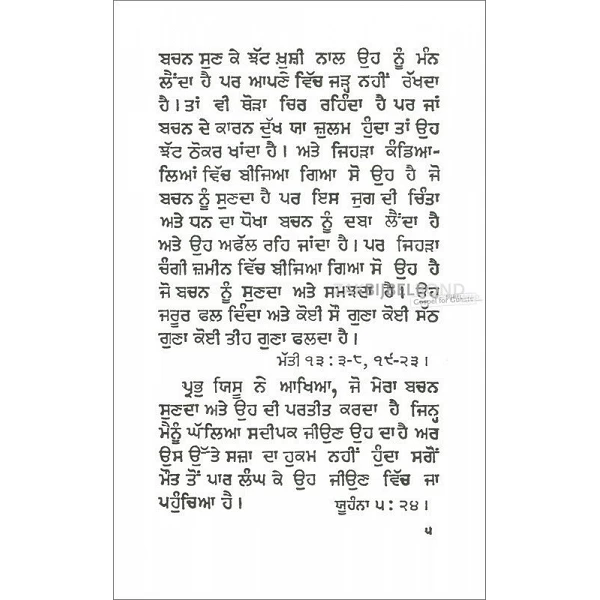 ਬਚਨ ਸੁਣ ਕੇ ਝੱਟ ਖ਼ੁਸ਼ੀ ਨਾਲ ਉਹ ਨੂੰ ਮੰਨ
ਲੈਂਦਾ ਹੈ ਪਰ ਆਪਣੇ ਵਿੱਚ ਜੜ੍ਹ ਨਹੀਂ ਰੱਖਦਾ
ਹੈ। ਤਾਂ ਵੀ ਥੋੜਾ ਚਿਰ ਰਹਿੰਦਾ ਹੈ ਪਰ ਜਾਂ
ਬਚਨ ਦੇ ਕਾਰਨ ਦੁੱਖ ਯਾ ਜ਼ੁਲਮ ਹੁੰਦਾ ਤਾਂ ਉਹ
ਝੱਟ ਠੋਕਰ ਖਾਂਦਾ ਹੈ। ਅਤੇ ਜਿਹੜਾ ਕੰਡਿਆ-
ਲਿਆਂ ਵਿੱਚ ਬੀਜਿਆ ਗਿਆ ਸੋ ਉਹ ਹੈ ਜੋ
ਬਚਨ ਨੂੰ ਸੁਣਦਾ ਹੈ ਪਰ ਇਸ ਜੁਗ ਦੀ ਚਿੰਤਾ
ਅਤੇ ਧਨ ਦਾ ਧੋਖਾ ਬਚਨ ਨੂੰ ਦਬਾ ਲੈਂਦਾ ਹੈ
ਅਤੇ ਉਹ ਅਫੱਲ ਰਹਿ ਜਾਂਦਾ ਹੈ। ਪਰ ਜਿਹੜਾ
ਚੰਗੀ ਜ਼ਮੀਨ ਵਿੱਚ ਬੀਜਿਆ ਗਿਆ ਸੋ ਉਹ ਹੈ
ਜੋ ਬਚਨ ਨੂੰ ਸੁਣਦਾ ਅਤੇ ਸਮਝਦਾ ਹੈ। ਉਹ
ਜਰੂਰ ਫਲ ਦਿੰਦਾ ਅਤੇ ਕੋਈ ਸੌ ਗੁਣਾ ਕੋਈ ਸੱਠ
ਗੁਣਾ ਕੋਈ ਤੀਹ ਗੁਣਾ ਫਲਦਾ ਹੈ।
ਮੱਤੀ ੧੩ : ੩-੮, ੧੯-੨੩।
ਪ੍ਰਭੁ ਯਿਸੂ ਨੇ ਆਖਿਆ, ਜੋ ਮੇਰਾ ਬਚਨ
ਸੁਣਦਾ ਅਤੇ ਉਹ ਦੀ ਪਰਤੀਤ ਕਰਦਾ ਹੈ ਜਿਨ੍ਹ
ਮੈਨੂੰ ਘੱਲਿਆ ਸਦੀਪਕ ਜੀਉਣ ਉਹ ਦਾ ਹੈ ਅਰ
ਉਸ ਉੱਤੇ ਸਜ਼ਾ ਦਾ ਹੁਕਮ ਨਹੀਂ ਹੁੰਦਾ ਸਗੋਂ
ਮੌਤ ਤੋਂ ਪਾਰ ਲੰਘ ਕੇ ਉਹ ਜੀਉਣ ਵਿੱਚ ਜਾ
ਪਹੁੰਚਿਆ ਹੈ।
ਯੂਹੰਨਾ ੫ : ੨੪।
੫